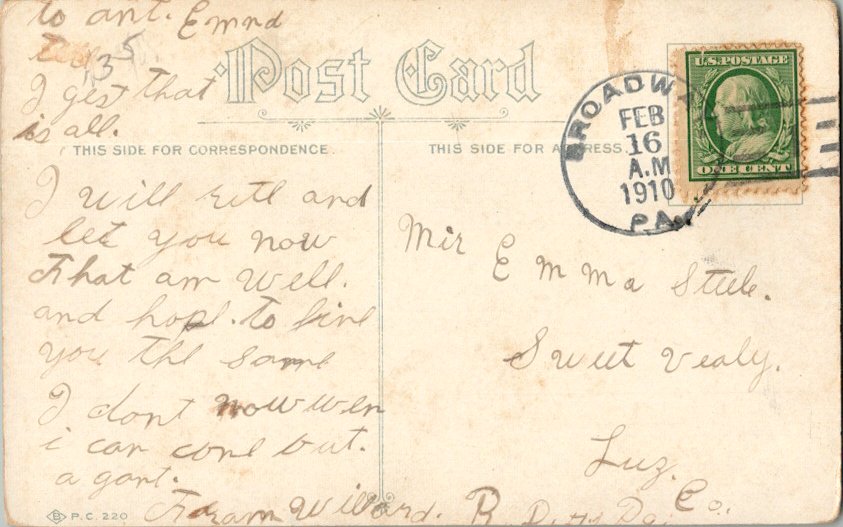 to ant. Emnd
135
I gest that
is all.
Post Card
THIS SIDE FOR CORRESPONDENCE.
THIS SIDE FOR ADDRESS.
U.S. POSTAGE
ONE CENT
BROADWAY
FEB
16
A.M
1910
PA.
I will ritl and
let you now
that am well.
and hope. to fine
you the same
I dont now wen
i can come but.
a gant.
Fram Willard.
P.C. 220
Mir Emma Steele.
Sweet Vealy.
Luz. Co.
R D. Pa.